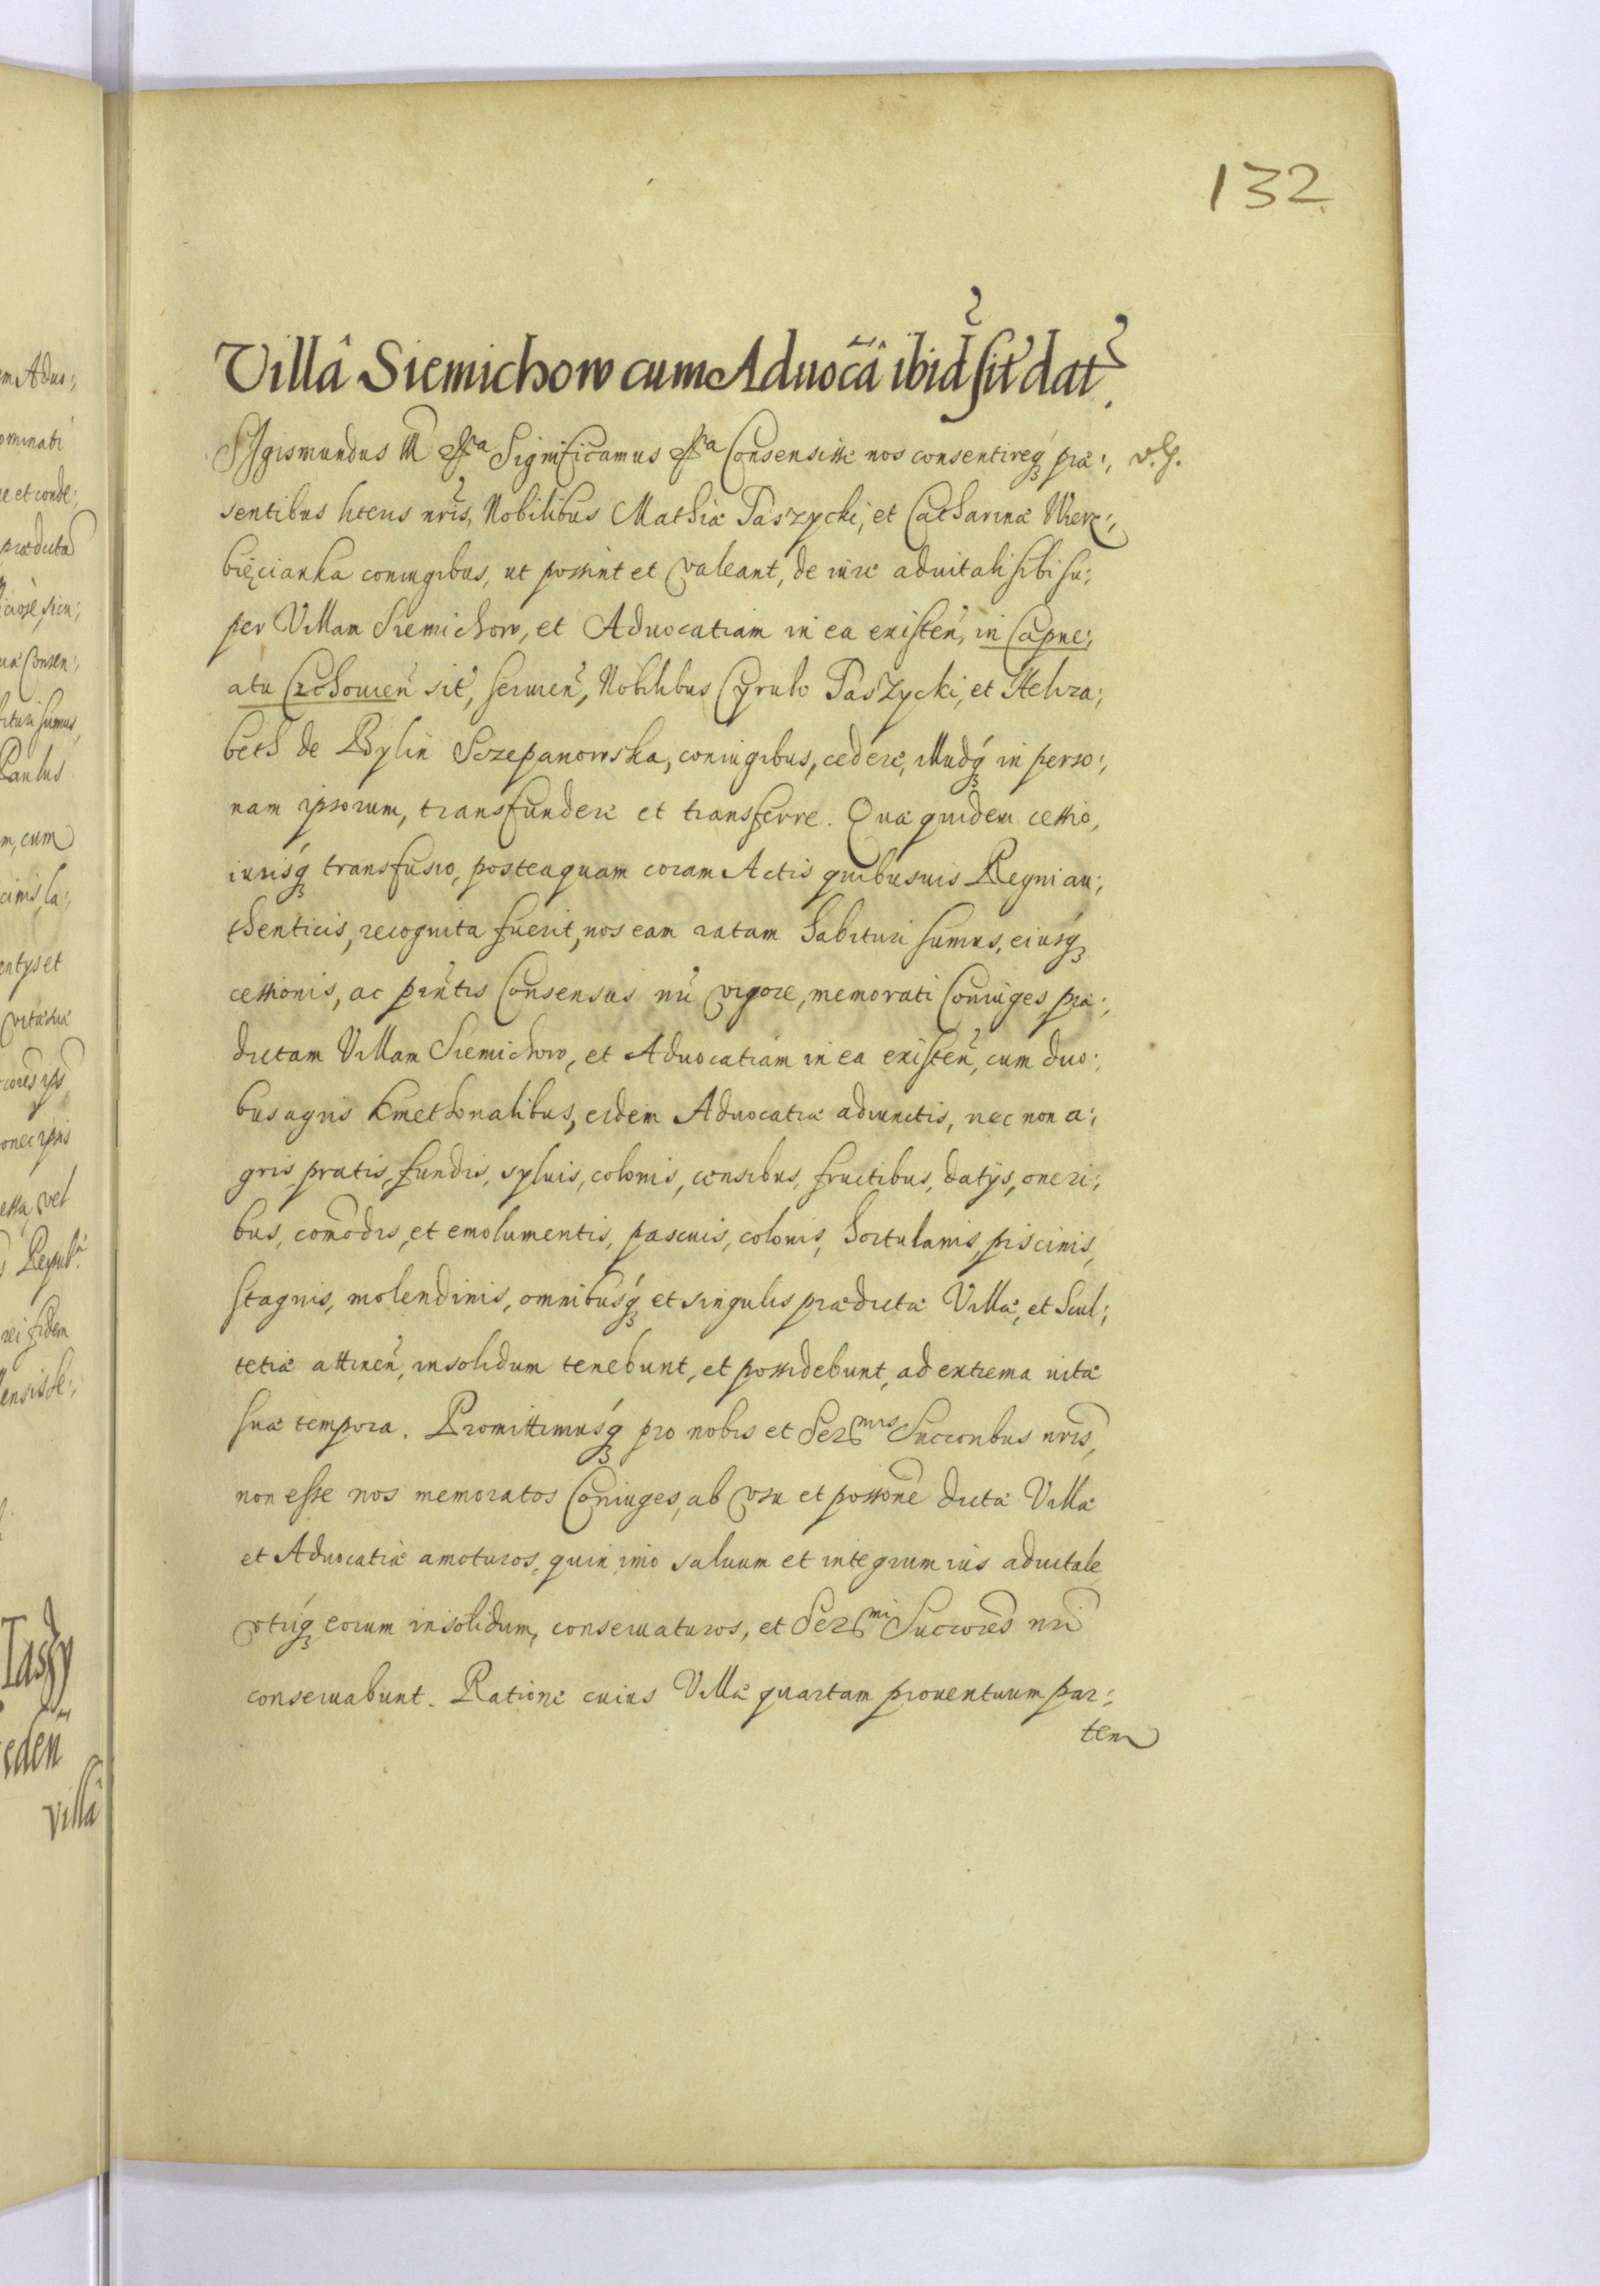 132
Villâ Siemichow cum Aduocâ ibid sit dat.
SIgismundus III etc<sup>a</sup> Significamus etc<sup>a</sup> Consensisse nos consentireq præ:, v. G.
sentibus literis nris, Nobilibus Mathiæ Taszycki, et Catharinæ Wierz:,
bięcianka coniugibus, ut possint et valeant, de iure aduitali sibi su:,
per Villam Siemichow, et Aduocatiam in ea existen, in Capne:,
atu Czchouien sit, seruien, Nobilibus Cyrulo Taszycki, et Helza:,
beth de Bylin Sczepanowska, coniugibus, cedere, illudq in perso:,
nam ipsorum, transfundere et transferre. Quæ quidem cessio,
iurisq transfusio, posteaquam coram Actis quibusuis Regni au:,
thenticis, recognita fuerit, nos eam ratam habituri sumus, eiusq
cessionis, ac pntis Consensus nri vigore, memorati Coniuges, præ:,
dictam Villam Siemichow, et Aduocatiam in ea existen, cum duo:,
bus agris kmethonalibus, eidem Aduocatiæ adiunctis, nec non a:,
gris, pratis, fundis, syluis, colonis, censibus, fructibus, datijs, oneri:,
bus, comodis, et emolumentis, pascuis, colonis, hortulanis, piscinis,
stagnis, molendinis, omnibusq et singulis prædictæ Villæ, et Scul:,
tetiæ attinen, insolidum tenebunt, et possidebunt, ad extrema uitæ
suæ tempora. Promittimusq pro nobis et Ser<sup>mis</sup> Succoribus nris,
non esse nos memoratos Coniuges, ab vsu et possone dictæ Villæ
et Aduocatiæ amoturos, quin imo saluum et integrum ius aduitale
vtriq eorum insolidum, conseruaturos, et Ser<sup>mi</sup> Succores nri
conseruabunt. Ratione cuius Villæ quartam prouentuum par:,
tem